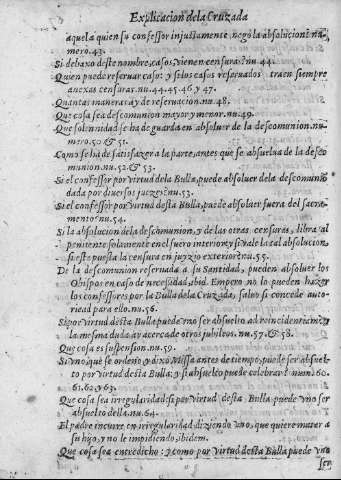 Explicacion dela Cruzada
aquel a quien su confessor injustamente, negó la absolucion? nu
mero. 43.
Si debaxo deste nombre, casos, vienen censuras? nu. 44.
Quien puede reservar caso: y si los casos reservados traen siempre
anexas censuras. nu. 44. 45. 46. y 47.
Quantas maneras ay de reservacion. nu. 48.
Que cosa sea descomunion mayor y menor. nu. 49.
Que solenidad se ha de guarda en absolver de la descomunion. nu-
mero. 50. & 51.
Como se ha de satisfazer a la parte, antes que se absuelva de la desco
munion. nu. 52. & 53.
Si el confessor por virtud dela Bulla, puede absolver dela descomuniõ
dada por diversos juezes? nu. 53.
Si el confessor por virtud desta Bulla, puede absolver fuera del sacra-
mento? nu. 54.
Si la absolucion dela descomunion, y de las otras censuras, libra al
penitente solamente en el fuero interior, y si vale la tal absolucion,
si esto puesta la censura en juyzio exterior? nu. 55.
De la descomunion reservada a su Santidad, pueden absolver los
Obispos en caso de necesidad, ibid. Empero no lo pueden hazer
los confessores por la Bulla dela Cruzada, salvo si concede auto-
ridad para ello. nu. 56.
Si por virtud desta Bulla puede uno ser absuelto ad reincidentiam: y
la mesma duda ay acerca de otros jubileos. nu. 57. & 58.
Que cosa es suspension. nu. 59.
Si uno, que se ordenò, y dixo Missa antes de tiempo, puede ser absuel
to por virtud desta Bulla: y si absuelto puede celebrar? num. 60.
61. 62. y 63.
Que cosa sea irregularidad: si por virtud desta Bulla puede uno ser
absuelto della. nu. 64.
El padre incurre en irregularidad diziendo uno, que quiere matar a
su hijo, y no le impidiendo, ibidem.
Que cosa sea entredicho: y como por virtud desta Bulla puede uno
ser